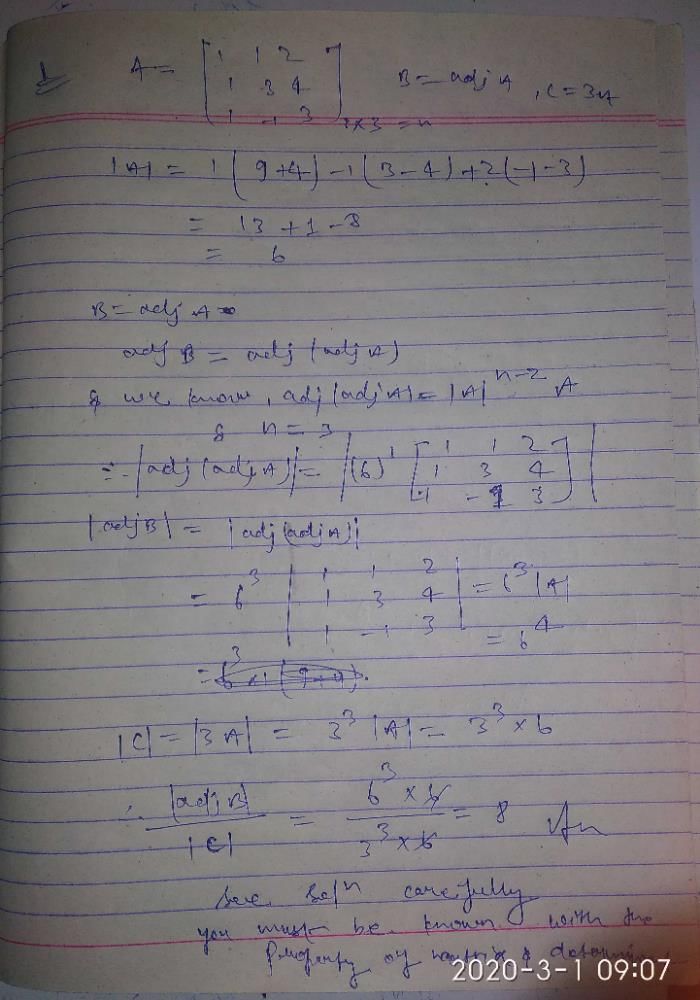 1 A = [ 1 1 2 B = adj A , C = 3A
1 3 4
1 -1 3 ] 3×3 = n
|A| = 1 ( 9+4 ) - 1 ( 3 - 4 ) + 2 ( -1 - 3 )
= 13 + 1 - 8
= 6
B = adj A
adj B = adj (adj A)
& we know, adj (adj A) = |A|^{n-2} A
& n = 3
∴ |adj (adj A)| = | (6)^1 [ 1 1 2
1 3 4
1 -1 3 ] |
|adj B| = |adj (adj A)|
= 6^3 | 1 1 2
1 3 4
1 -1 3 | = 6^3 |A|
= 6^4
|C| = |3A| = 3^3 |A| = 3^3 × 6
∴ |adj B| / |C| = 6^3 × 6 / 3^3 × 6 = 8 An
See Sol^n carefully
you must be known with the
property of matrix &
2020-3-1 09:07